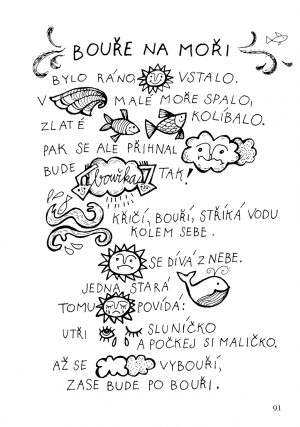 BOUŘE NA MOŘI
BYLO RÁNO, VSTALO.
V MALÉ MOŘE SPALO,
ZLATÉ KOLÍBALO.
PAK SE ALE PŘIHNAL
BUDE bouřka TAK!
KŘIČÍ, BOUŘÍ, STŘÍKÁ VODU
KOLEM SEBE.
SE DÍVÁ Z NEBE.
JEDNA STARÁ
TOMU POVÍDÁ:
UTŘI SLUNÍČKO
A POČKEJ SI MALIČKO.
AŽ SE VYBOUŘÍ,
ZASE BUDE PO BOUŘI.
91